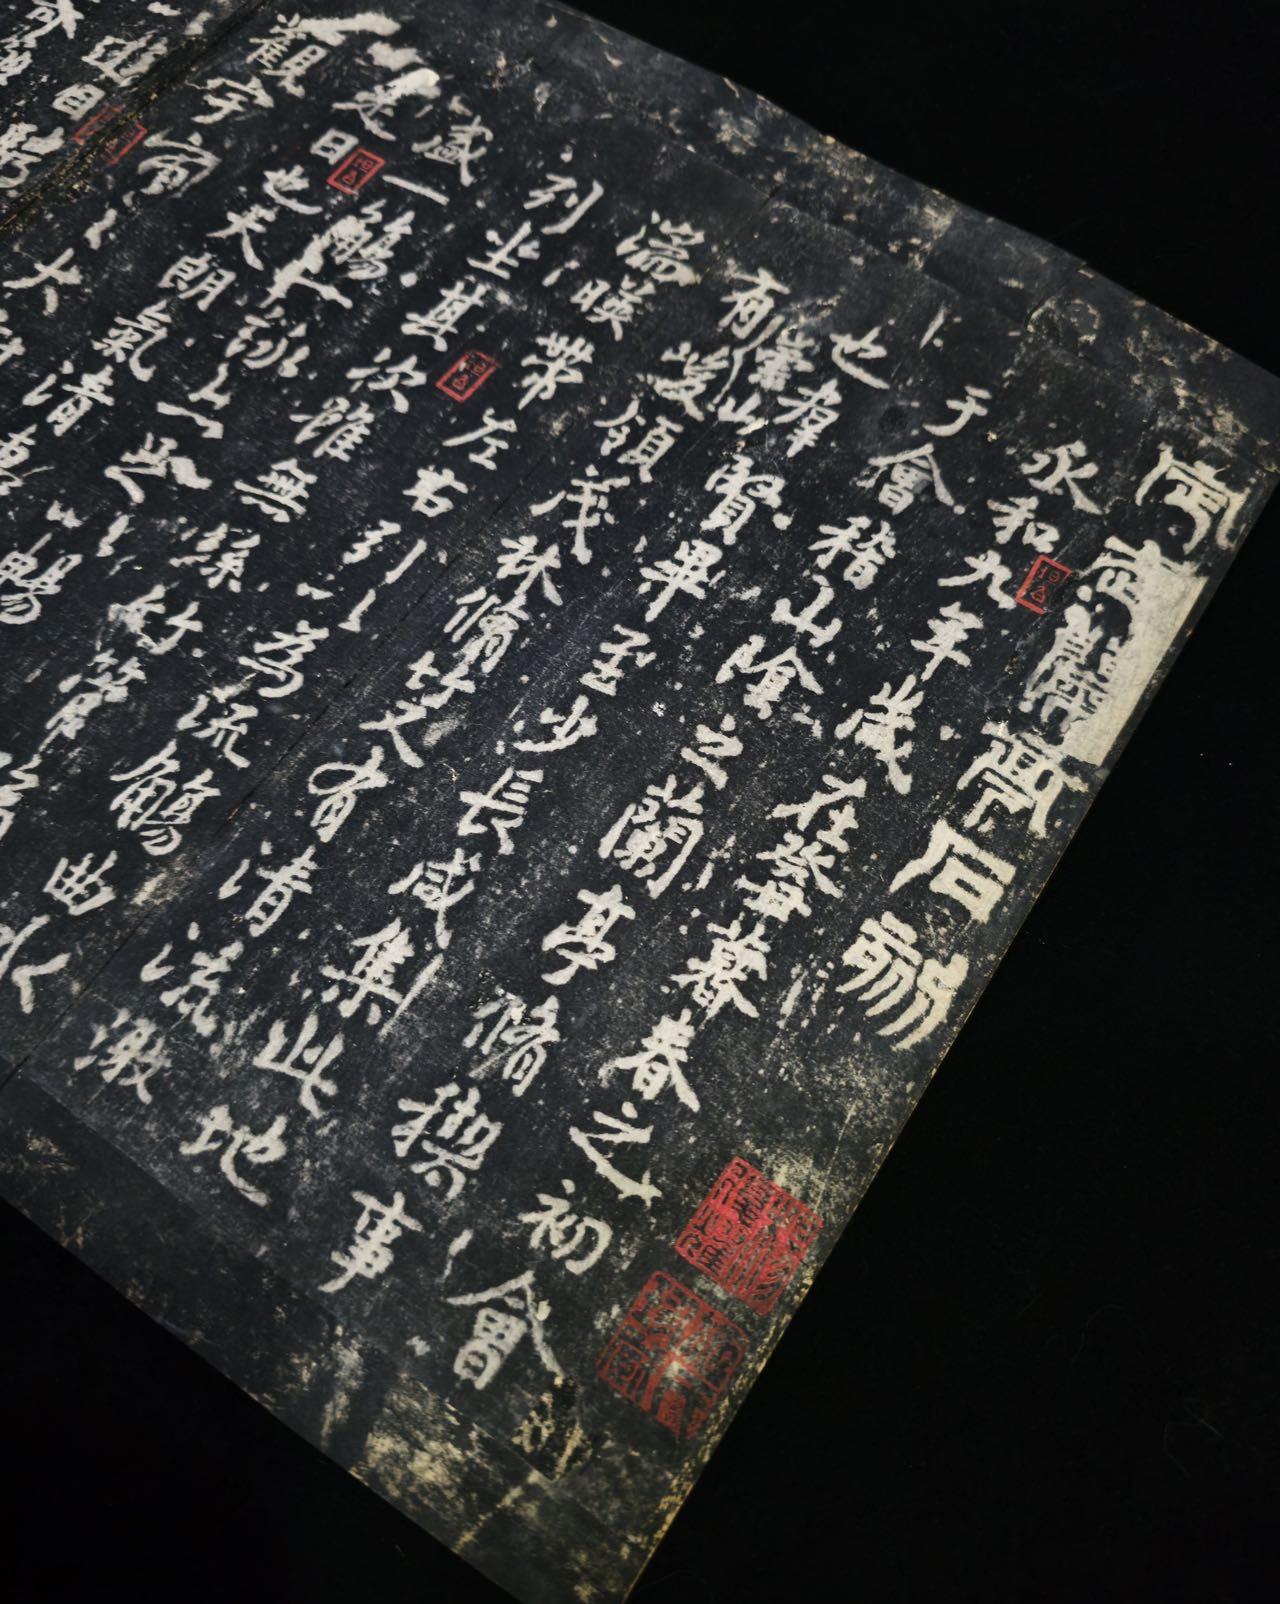 定武蘭亭石刻
永和九年歲在癸丑暮春之初會
于會稽山陰之蘭亭脩禊事
也羣賢畢至少長咸集此地
有崇山峻領茂林脩竹又有清流激
湍暎帶左右引以為流觴曲水
列坐其次雖無絲竹管
盛一觴一詠亦足以暢
是日也天朗氣清惠
觀宇宙之大
遊目騁